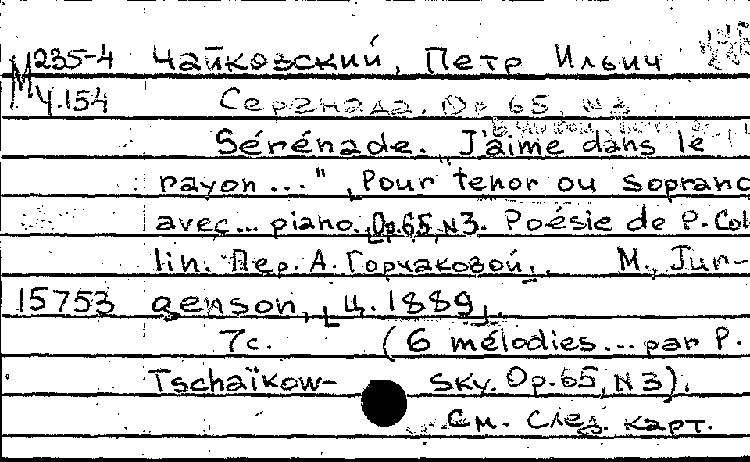 М 235-4 Чайковский, Петр Ильич
Ч.154 Серенада. Op 65, N3
Sérénade. „J'aime dans le
rayon..." Pour tenor ou soprano
avec... piano. Op.65, N3. Poésie de P. Col-
lin. Пер. А. Горчаковой. М., Jur-
15753 genson, [ц. 1889].
7с. (6 mélodies... par P.
Tschaïkow- sky. Op.65, N3).
См. след. карт.